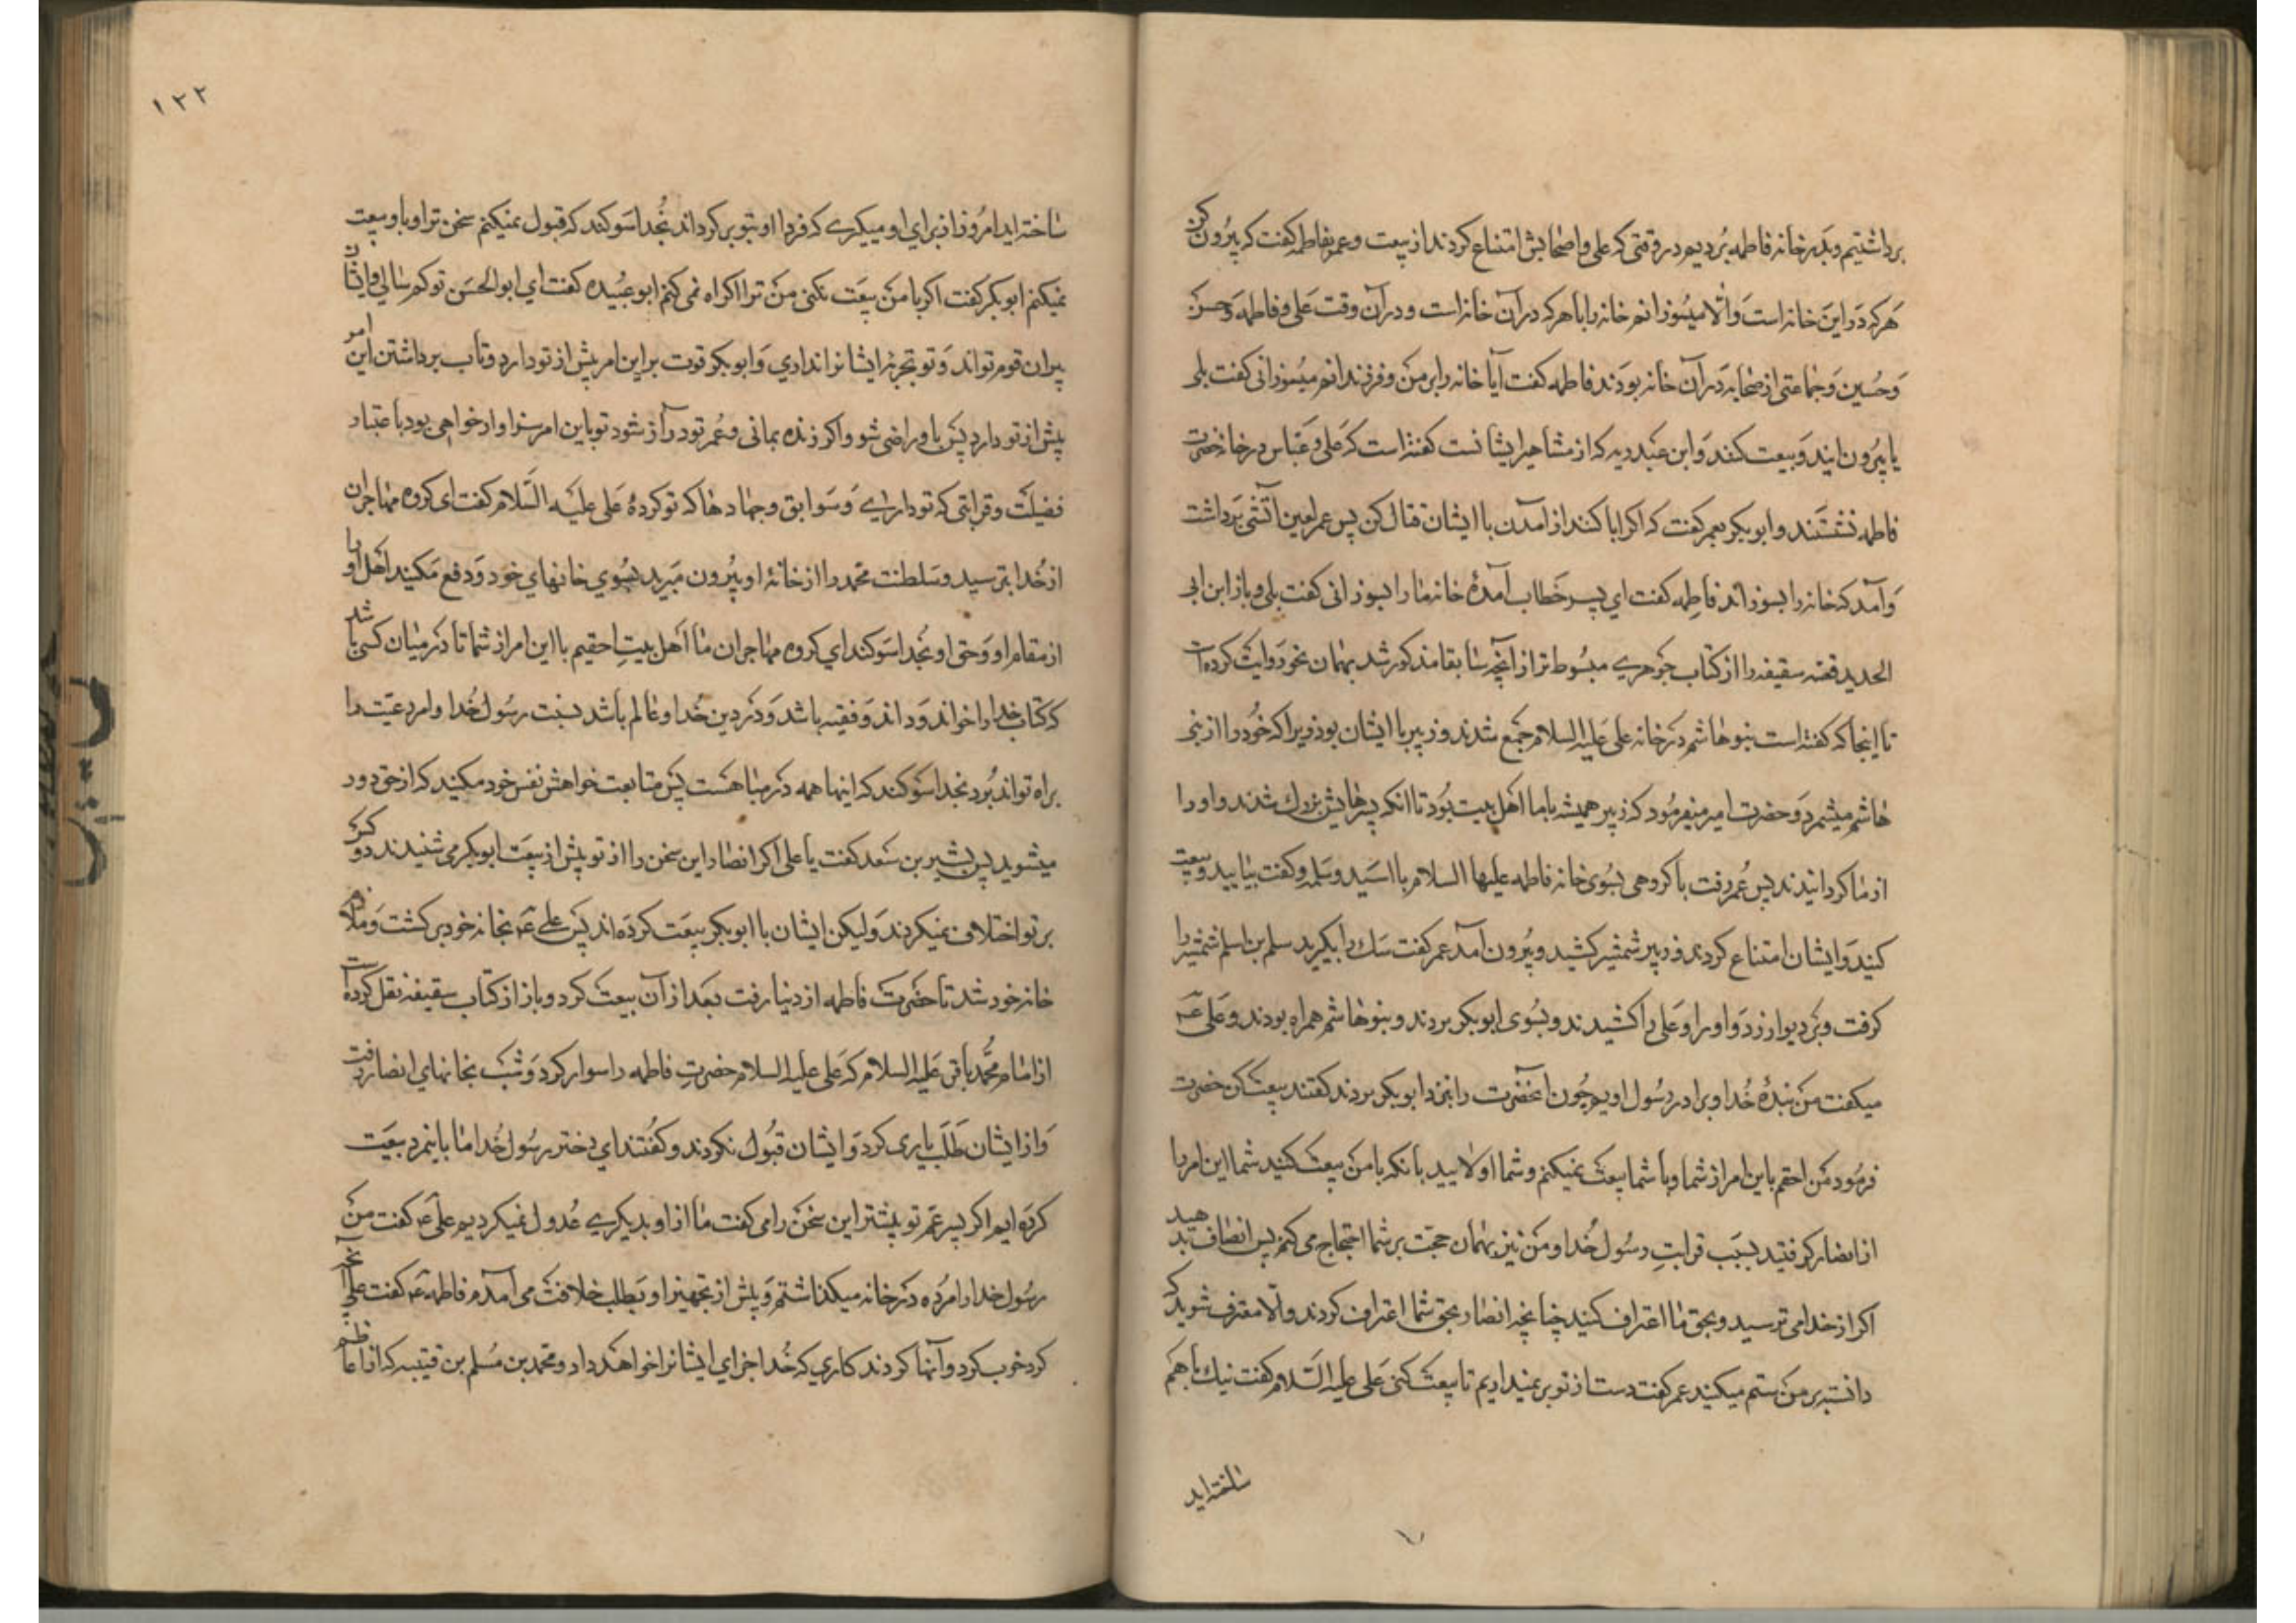 برداشتیم و بدر خانه فاطمه بردیم در وقتی که علی و اصحابش امتناع کردند از بیعت و عمر بفاطمه گفت که بیرون کن
هرکه در این خانه است و الا میسوزانم خانه را با هرکه در آن خانه است و در آن وقت علی و فاطمه و حسن
و حسین و جماعتی از صحابه در آن خانه بودند فاطمه گفت آیا خانه را بر من و فرزندانم میسوزانی گفت بلی
یا بیرون ایند و بیعت کنند و ابن عبد ربه که از مشاهیر ایشانست گفته است که علی و عباس در خانه حضرت
فاطمه نشستند و ابوبکر بعمر گفت که اگر ابا کنند از آمدن با ایشان قتال کن پس عمر لعین آتشی برداشت
و آمد که خانه را بسوزاند فاطمه گفت ای پسر خطاب آمدهٔ خانه ما را بسوزانی گفت بلی و باز ابن ابی
الحدید قصه سقیفه را از کتاب جوهری مبسوط تر از آنچه سابقا مذکور شد بهمان نحو روایت کرده است
تا اینجا که گفته است بنو هاشم در خانه علی علیه السلام جمع شدند و زبیر با ایشان بود زیرا که خود را از بنی
هاشم میشمرد و حضرت امیر میفرمود که زبیر همیشه با ما اهل بیت بود تا انکه پسرهایش بزرك شدند و او را
از ما گردانیدند پس عمر رفت با گروهی بسوی خانه فاطمه علیها السلام با اسید و سلمه و گفت بیایید و بیعت
کنید و ایشان امتناع کردند و زبیر شمشیر کشید و بیرون آمد عمر گفت سك را بگیرید سلمه بن اسلم شمشیر را
گرفت و بر دیوار زد و او را و علی را کشیدند و بسوی ابوبکر بردند و بنو هاشم همراه بودند و علی ع
میگفت من بندهٔ خدا و برادر رسول اویم چون آنحضرت را بنزد ابوبکر بردند گفتند بیعت کن حضرت
فرمود من احقم باین امر از شما و با شما بیعت نمیکنم و شما اولایید بانکه با من بیعت کنید شما این امر را
از انصار گرفتید بسبب قرابت رسول خدا و من نیز بهمان حجت بر شما احتجاج می کنم پس انصاف بدهید
اگر از خدا می ترسید و بحق ما اعتراف کنید چنانچه انصار بحق شما اعتراف کردند و الا معترف شوید که
دانسته بر من ستم میکنید عمر گفت دست از تو بر نمیداریم تا بیعت کنی علی علیه السلام گفت نیك با هم
ساخته اید
۱۳۳
ساخته اید امروز از برای او میگیری که فردا او بتو بر گرداند بخدا سوگند که قبول نمیکنم سخن ترا و با او بیعت
نمیکنم ابوبکر گفت اگر با من بیعت نکنی من ترا اکراه نمی کنم ابو عبیده گفت ای ابوالحسن تو کم سالی و ایشان
پیران قوم تواند و تو تجربه ایشانرا نداری و ابوبکر قوت بر این امر بیش از تو دارد و تاب برداشتن این امر
بیش از تو دارد پس باو راضی شو و اگر زنده بمانی و عمر تو دراز شود تو باین امر سزاوار خواهی بود باعتبار
فضیلت و قرابتی که تو داری و سوابق و جهادها که تو کردهٔ علی علیه السلام گفت ای گروه مهاجران
از خدا بترسید و سلطنت محمد را از خانهٔ او بیرون مبرید بسوی خانهای خود و دفع مکنید اهل او را
از مقام او و حق او بخدا سوگند ای گروه مهاجران ما اهل بیت احقیم باین امر از شما تا در میان کسی باشد
که کتاب خدا را خواند و داند و فقیه باشد و در دین خدا و عالم باشد بسنت رسول خدا و امر رعیت را
براه تواند برد بخدا سوگند که اینها همه در ما هست پس متابعت خواهش نفس خود مکنید که از حق دور
میشوید پس بشیر بن سعد گفت یا علی اگر انصار این سخن را از تو پیش از بیعت ابوبکر می شنیدند دو کس
بر تو اختلاف نمیکردند و لیکن ایشان با ابوبکر بیعت کرده اند پس علی ع بخانه خود بر گشت و ملازم
خانه خود شد تا حضرت فاطمه از دنیا رفت بعد از آن بیعت کرد و باز از کتاب سقیفه نقل کرده است
از امام محمد باقر علیه السلام که علی علیه السلام حضرت فاطمه را سوار کرد و شب بخانهای انصار رفت
و از ایشان طلب یاری کرد و ایشان قبول نکردند و گفتند ای دختر رسول خدا ما باینمرد بیعت
کرده ایم اگر پسر عم تو پیشتر این سخن را می گفت ما از او بدیگری عدول نمیکردیم علی ع گفت من
رسول خدا را مرده در خانه میگذاشتم و پیش از تجهیز او بطلب خلافت می آمدم فاطمه ع گفت علی آنچه
کرد خوب کرد و آنها کردند کاری که خدا جزای ایشانرا خواهد داد و محمد بن مسلم بن قتیبه که از اعاظم